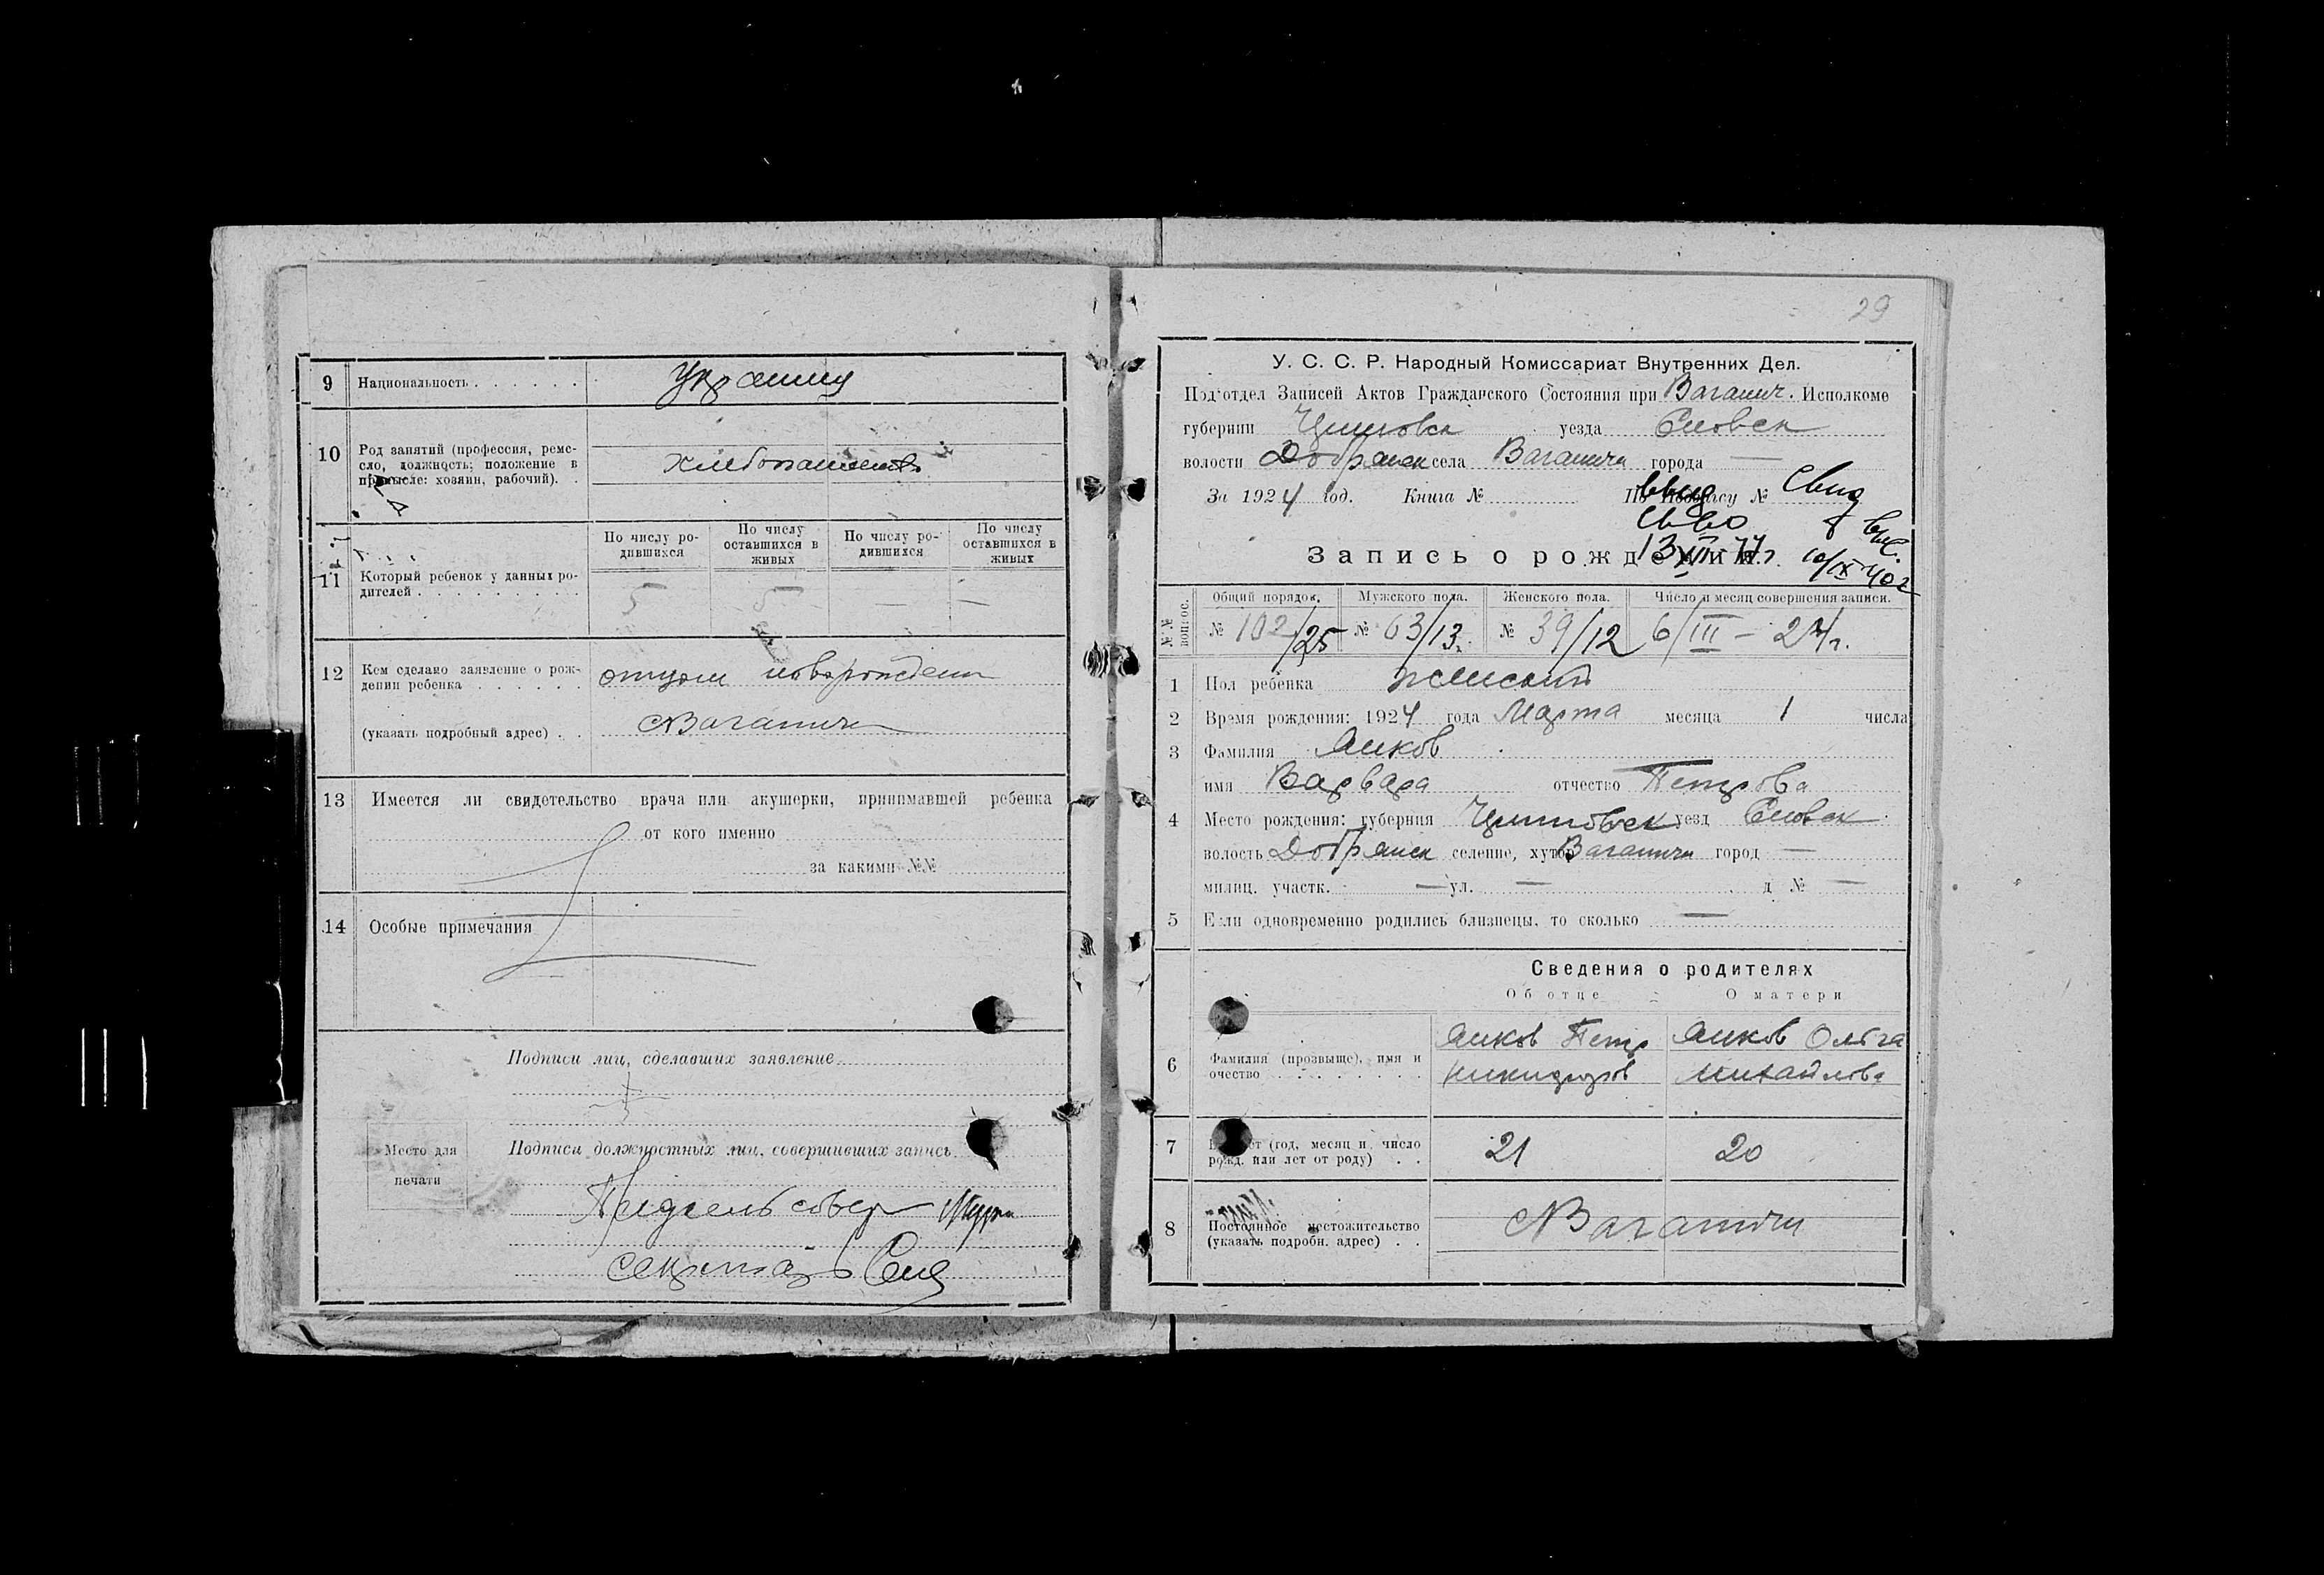 9 Национальность . . . . . . Украинц
10 Род занятий (профессия, ремесло, должность; положение в промысле: хозяин, рабочий). . хлебопашеств
11 Который ребенок у данных родителей . . . . . . . . .
По числу родившихся
По числу оставшихся в живых
По числу родившихся
По числу оставшихся в живых
5 5 — —
12 Кем сделано заявление о рождении ребенка . . . . . . отцом новорожден
(указать подробный адрес) . . с Ваганичи
13 Имеется ли свидетельство врача или акушерки, принимавшей ребенка
от кого именно
за какими №№
14 Особые примечания
Подписи лиц, сделавших заявление
Место для печати
Подписи должностных лиц, совершивших запись
секретарь
29
У. С. С. Р. Народный Комиссариат Внутренних Дел.
Подотдел Записей Актов Гражданского Состояния при Ваганич. Исполкоме
губернии уезда Сновск
волости Добрянск села Ваганичи города —
За 1924 год. Книга № По №
Свид
10/IX 40г
13 XII 77г.
Запись о рождении.
№№ вопрос.
Общий порядок. Мужского пола. Женского пола. Число и месяц совершения записи.
№ 102/25 № 63/13 № 39/12 6/III – 24 г.
1 Пол ребенка женский
2 Время рождения: 1924 года Марта месяца 1 числа
3 Фамилия Янков
имя Варвара отчество Петрова
4 Место рождения: губерния уезд Сновск
волость Добрянск селение, хутор Ваганичи город —
милиц. участк. — ул. — д № —
5 Если одновременно родились близнецы, то сколько —
Сведения о родителях
Об отце О матери
6 Фамилия (прозвыще), имя и очество . . . . . . .
Янков Петр Янков Ольга
Никифоров Михайлова
7 лет (год, месяц и число рожд. или лет от роду) . . 21 20
8 Постоянное местожительство (указать подробн. адрес) . . с Ваганичи